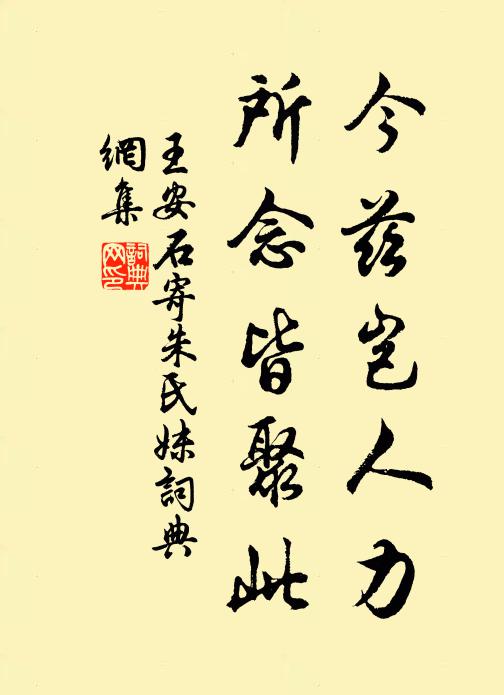 今茲豈人力
所念皆聚此
王安石寄朱氏妹詞典
網集
詞典網印